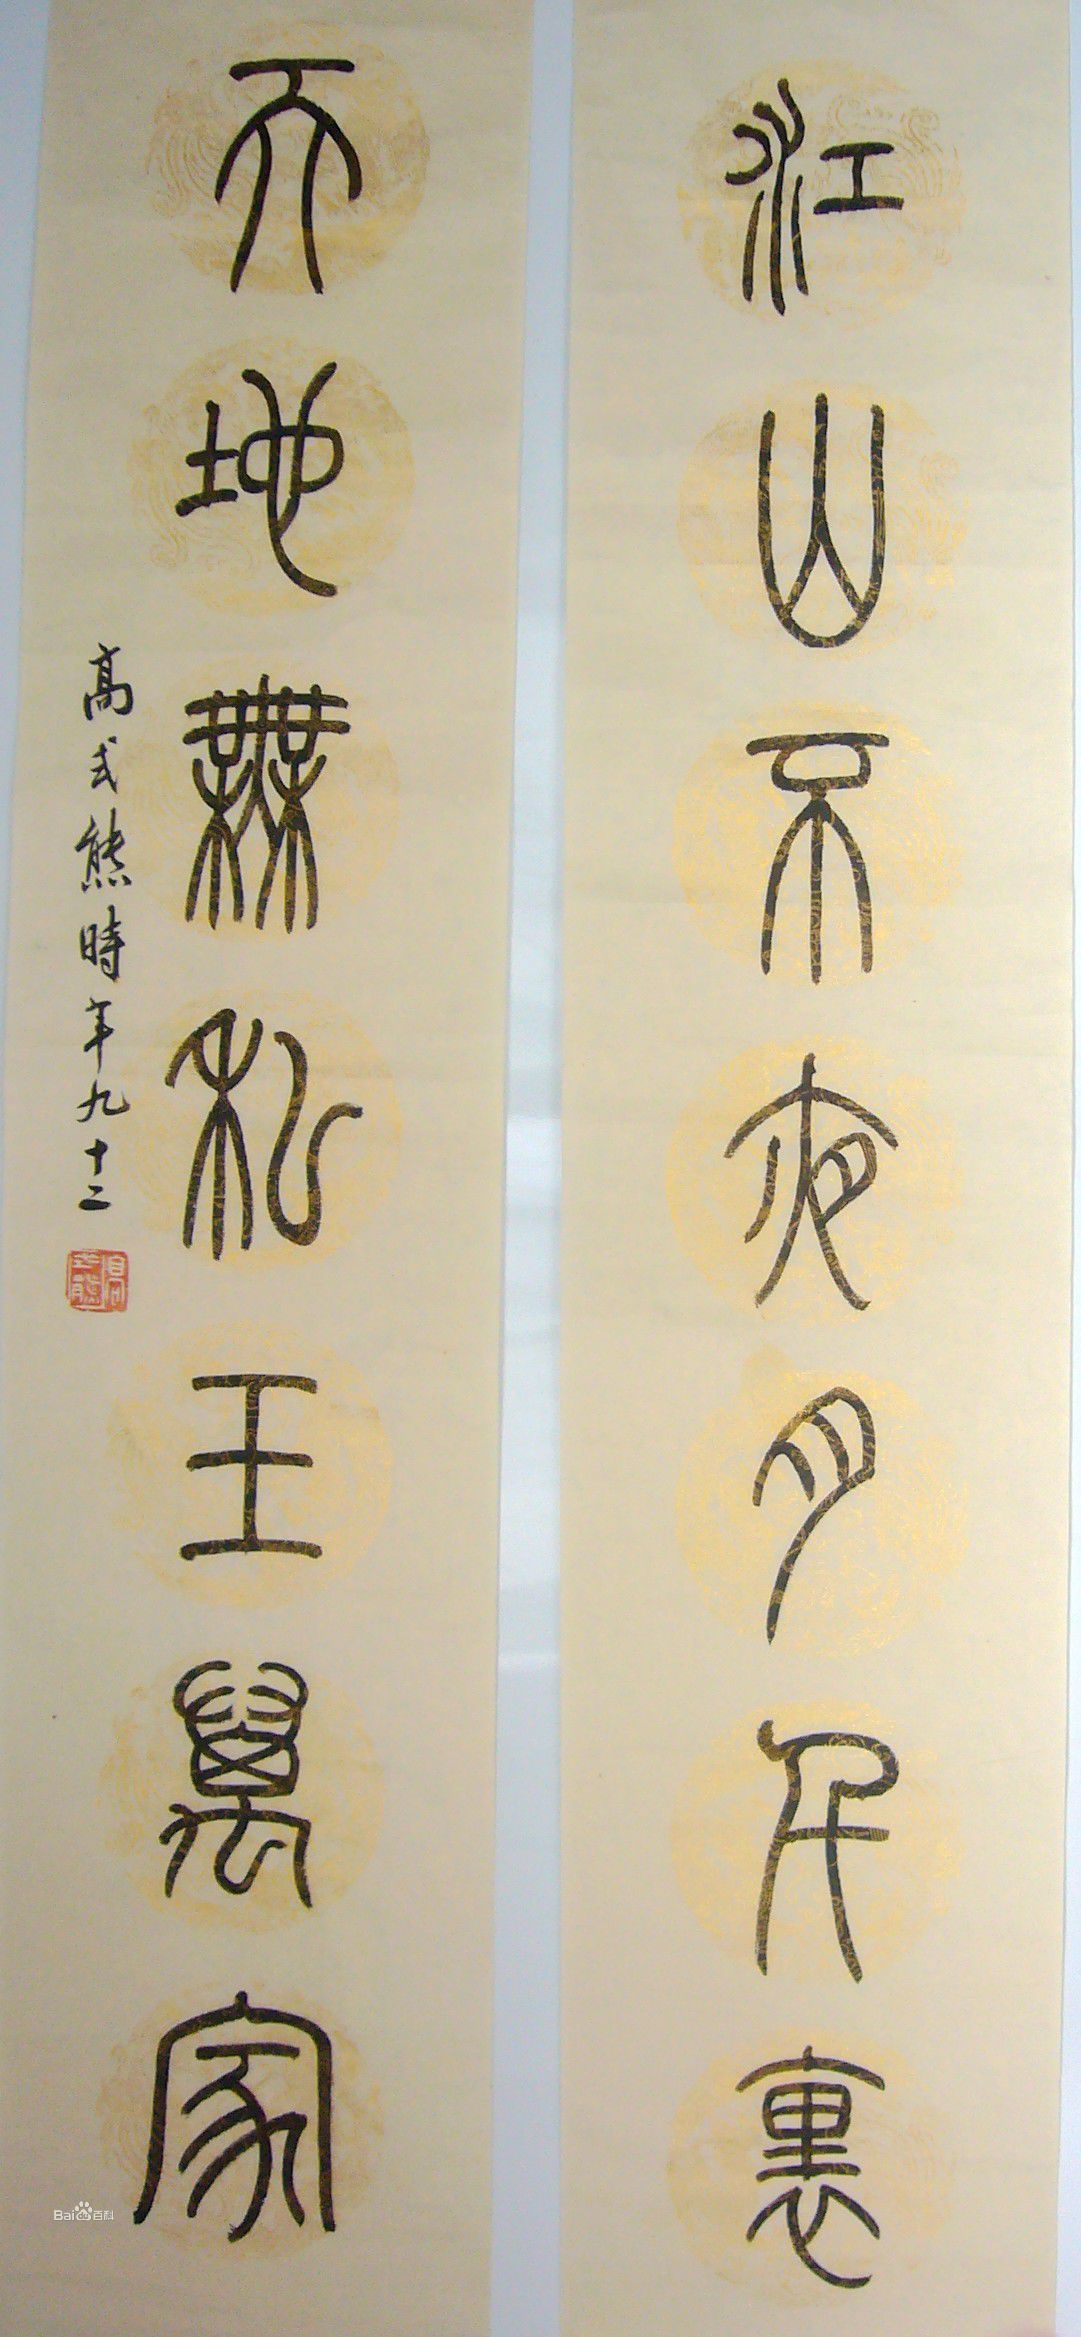 江山不夜月千裏
天地無私玉萬家
高式熊時年九十二
高式熊
Bai百科